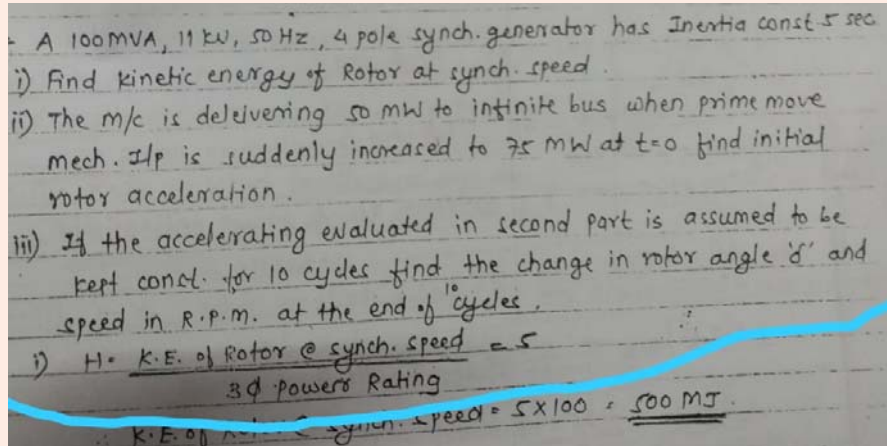 - A 100MVA, 11 kV, 50 Hz, 4 pole synch. generator has Inertia const 5 sec
i) Find kinetic energy of Rotor at synch. speed.
ii) The m/c is deleivering 50 mW to infinite bus when prime move
mech. I/p is suddenly increased to 75 mW at t=0 find initial
rotor acceleration.
iii) If the accelerating evaluated in second part is assumed to be
kept const. for 10 cycles find the change in rotor angle 'δ' and
speed in R.P.m. at the end of 10 cycles.
i) H = K.E. of Rotor @ synch. speed = 5
3φ powers Rating
∴ K.E. of Rotor @ synch. speed = 5×100 = 500 MJ.